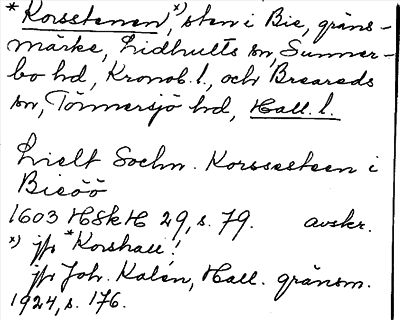 *Korsstenen,ˣ⁾ sten i Bie, gräns-
märke, Lidhults sn, Sunner-
bo hd, Kronob. l., och Breareds
sn, Tönnersjö hd, Hall. l.
Lielt Sochn. Korssesteen i
Bieöö
1603 HSkH 29, s. 79. avskr.
ˣ⁾ jfr *Korshall!
jfr Joh. Kalén, Hall. gränsm.
1924, s. 176.